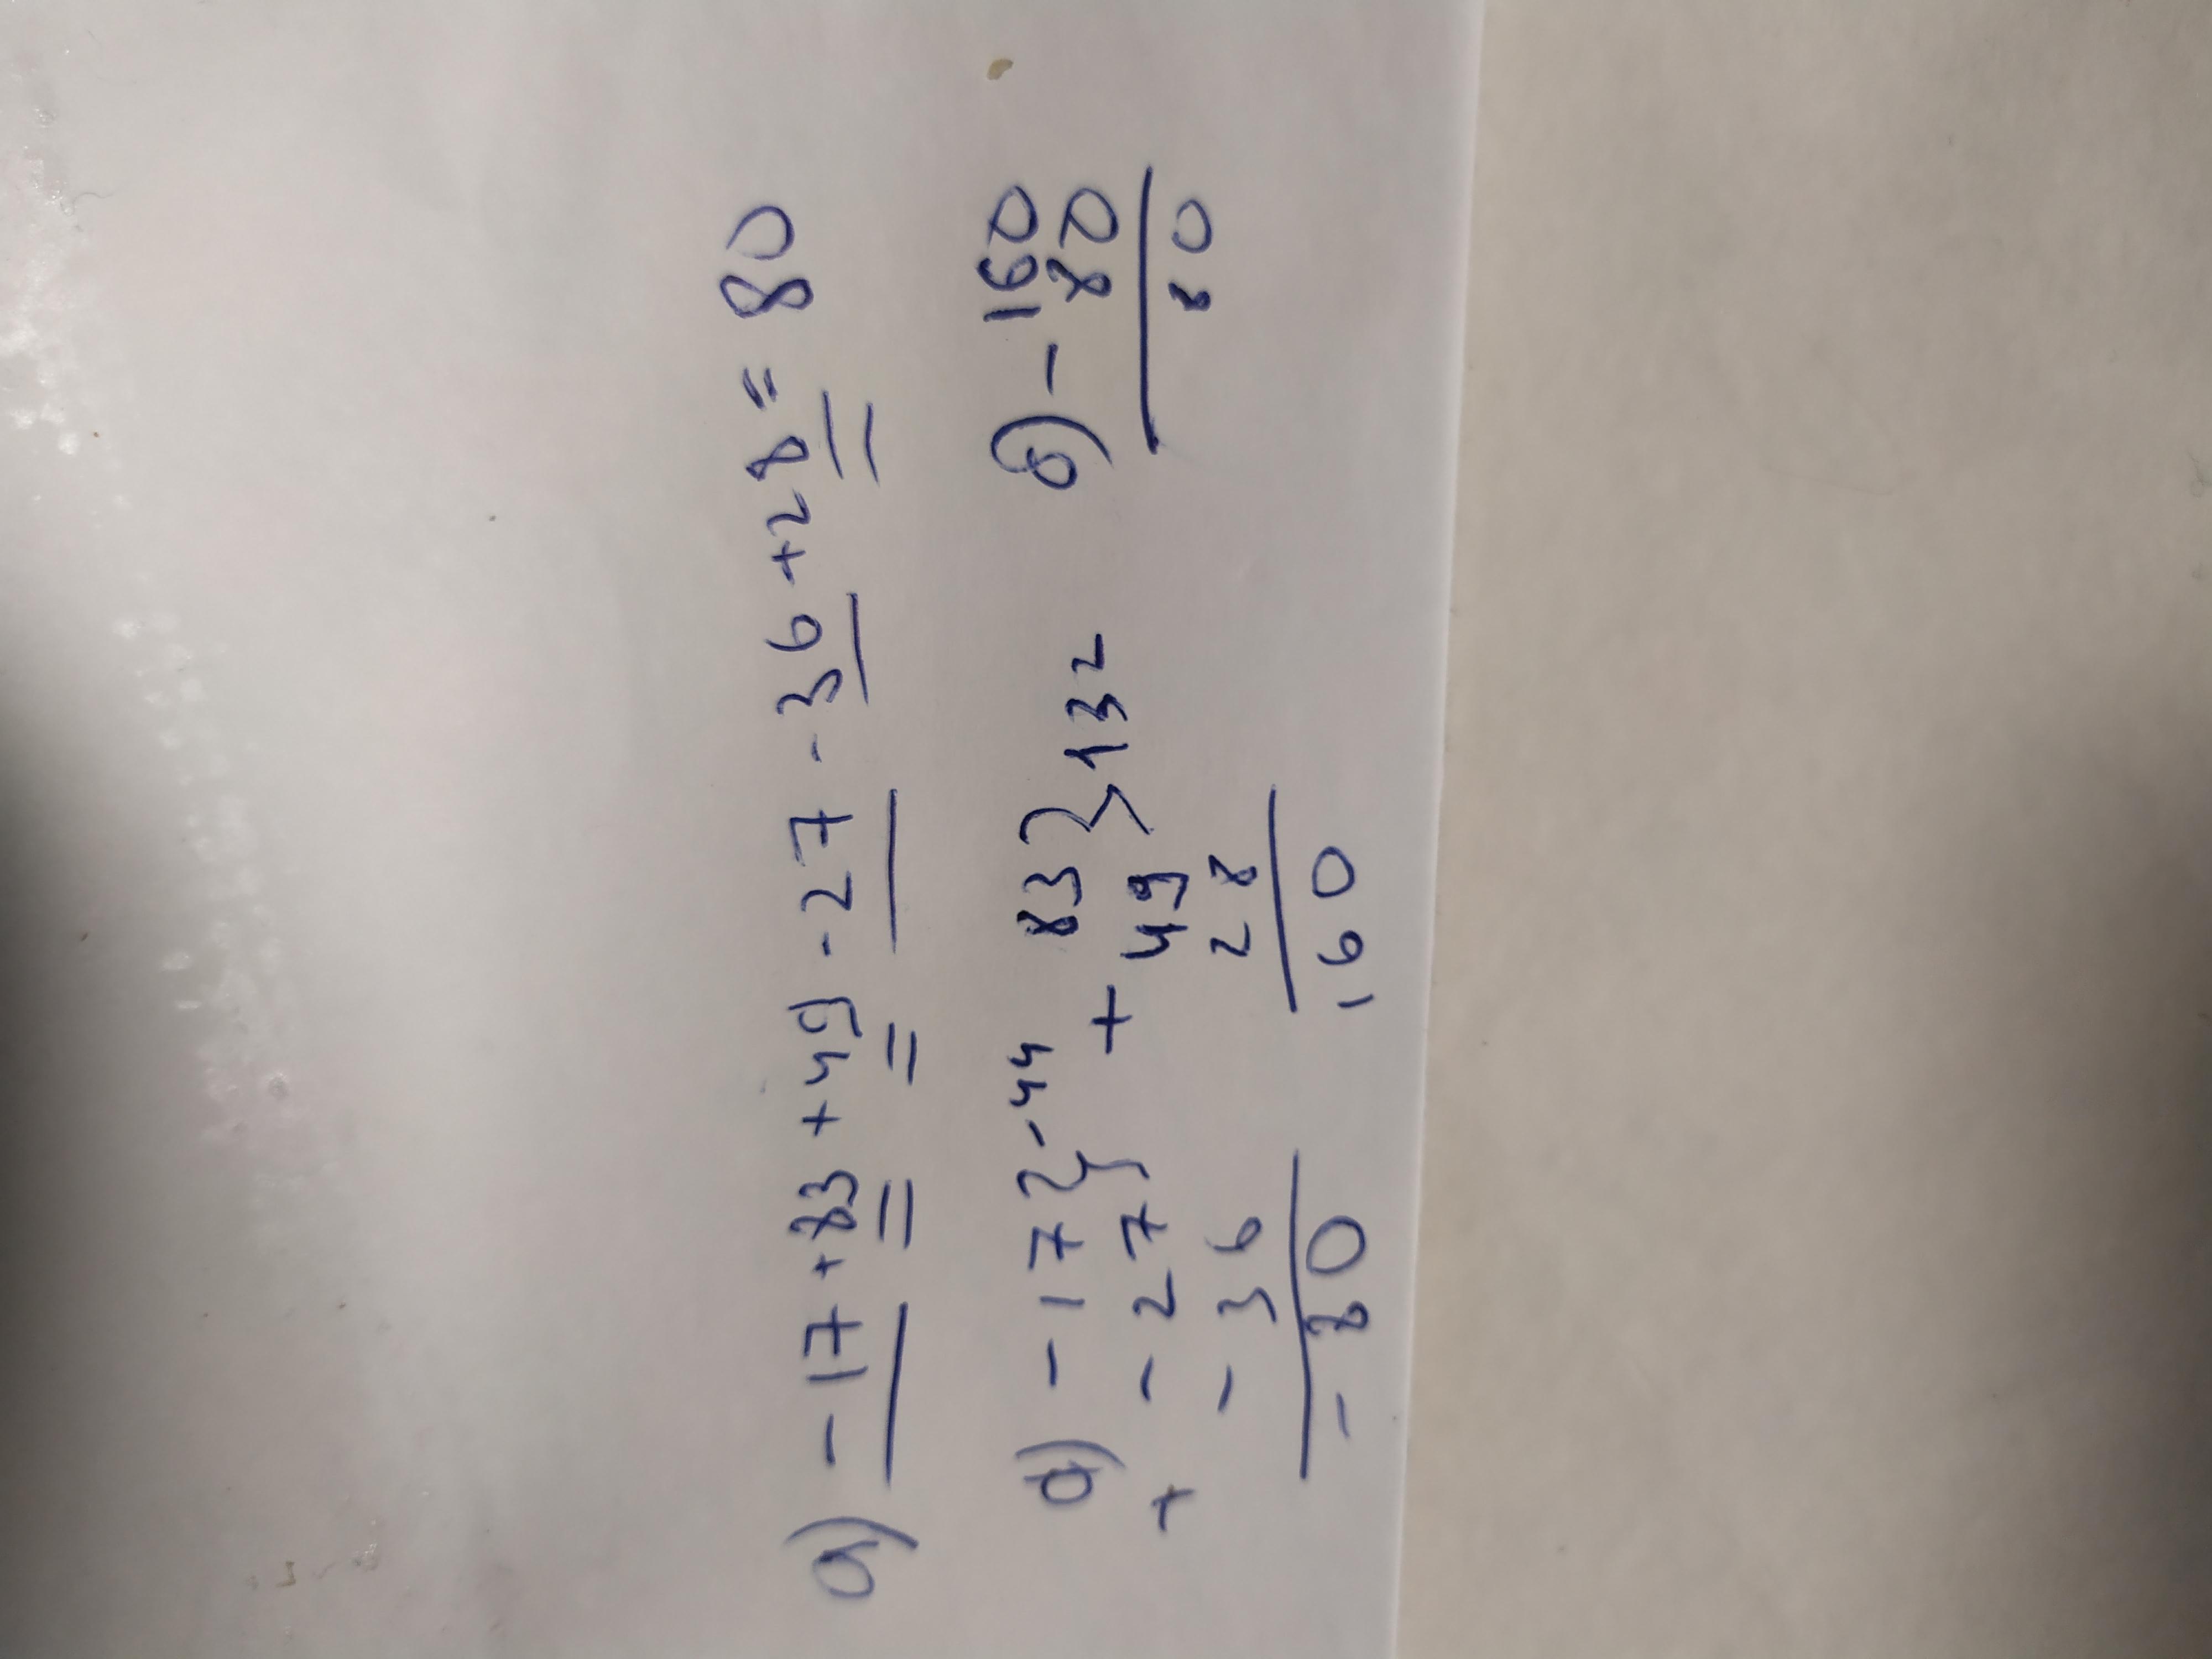 а) -17+83+49-27-36+28= 80
а) -17}-44 83}132 б) -160
+ -27 + 49 80
-36 28 80
-80 160